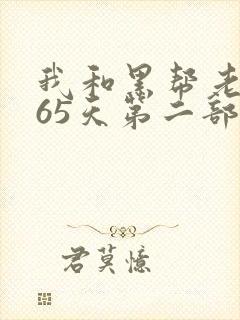 我和黑帮老
65天第二部
君莫憶